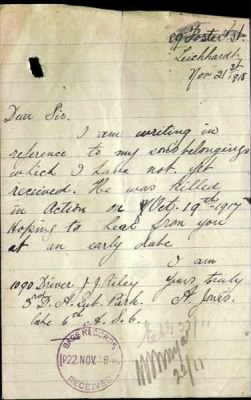 29 Foster St.
Leichhardt
Nov 21st 1918
Dear Sir.
I am writing in
reference to my sons belongings
which I have not yet
received. He was killed
in Action on Oct. 19th 1917
Hoping to hear from you
at an early date
I am
1090 Driver J J Riley Yours truly
3rd D. A. Sub. Park. A Jones.
late 6th A. S. C.
BASE RECORDS
22 NOV 18
RECEIVED
22/11